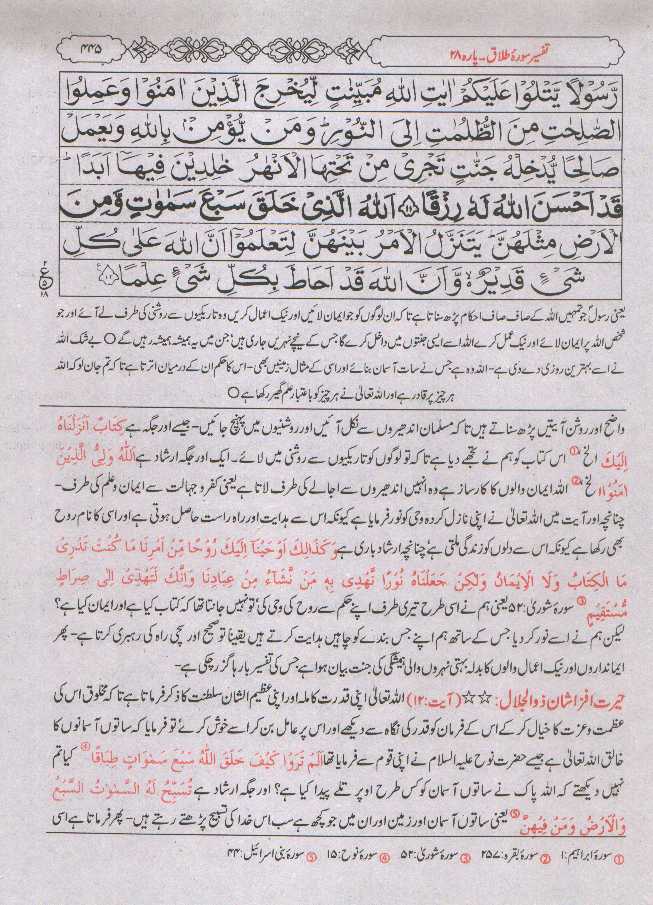 تفسیر سورۂ طلاق۔ پارہ ۲۸
۴۴۵
رَّسُوْلًا یَّتْلُوْا عَلَیْكُمْ اٰیٰتِ اللّٰهِ مُبَیِّنٰتٍ لِّیُخْرِجَ الَّذِیْنَ اٰمَنُوْا وَعَمِلُوا
الصّٰلِحٰتِ مِنَ الظُّلُمٰتِ اِلَی النُّوْرِ ؕ وَمَنْ یُّؤْمِنْۢ بِاللّٰهِ وَیَعْمَلْ
صَالِحًا یُّدْخِلْهُ جَنّٰتٍ تَجْرِیْ مِنْ تَحْتِهَا الْاَنْهٰرُ خٰلِدِیْنَ فِیْهَاۤ اَبَدًا ؕ
قَدْ اَحْسَنَ اللّٰهُ لَهٗ رِزْقًا ۝۱۱ اَللّٰهُ الَّذِیْ خَلَقَ سَبْعَ سَمٰوٰتٍ وَّمِنَ
الْاَرْضِ مِثْلَهُنَّ ؕ یَتَنَزَّلُ الْاَمْرُ بَیْنَهُنَّ لِتَعْلَمُوْۤا اَنَّ اللّٰهَ عَلٰی كُلِّ
شَیْءٍ قَدِیْرٌ ۙ وَّاَنَّ اللّٰهَ قَدْ اَحَاطَ بِكُلِّ شَیْءٍ عِلْمًا ۝۱۲
۲
ع
۵
۱۸
یعنی رسول جو تمہیں اللہ کے صاف صاف احکام پڑھ سناتا ہے تا کہ ان لوگوں کو جو ایمان لائیں اور نیک اعمال کریں وہ تاریکیوں سے روشنی کی طرف لے آئے اور جو
شخص اللہ پر ایمان لائے اور نیک عمل کرے اللہ اسے ایسی جنتوں میں داخل کرے گا جس کے نیچے نہریں جاری ہیں، جن میں یہ ہمیشہ ہمیشہ رہیں گے ○ بے شک اللہ
نے اسے بہترین روزی دے دی ہے۔ اللہ وہ ہے جس نے سات آسمان بنائے اور اسی کے مثال زمینیں بھی۔ اس کا حکم ان کے درمیان اترتا ہے تا کہ تم جان لو کہ اللہ
ہر چیز پر قادر ہے اور اللہ تعالیٰ نے ہر چیز کو باعتبار علم گھیر رکھا ہے ○
واضح اور روشن آیتیں پڑھ سناتے ہیں تا کہ مسلمان اندھیروں سے نکل آئیں اور روشنیوں میں پہنچ جائیں۔ جیسے اور جگہ ہے كِتَابٌ اَنْزَلْنَاهُ
اِلَیْكَ الخ ① اس کتاب کو ہم نے تجھے دیا ہے تا کہ تو لوگوں کو تاریکیوں سے روشنی میں لائے۔ ایک اور جگہ ارشاد ہے اَللّٰهُ وَلِیُّ الَّذِیْنَ
اٰمَنُوْا الخ ② اللہ ایمان والوں کا کارساز ہے وہ انہیں اندھیروں سے اجالے کی طرف لاتا ہے یعنی کفر و جہالت سے ایمان و علم کی طرف۔
چنانچہ اور آیت میں اللہ تعالیٰ نے اپنی نازل کردہ وحی کو نور فرمایا ہے کیونکہ اس سے ہدایت اور راہ راست حاصل ہوتی ہے اور اسی کا نام روح
بھی رکھا ہے کیونکہ اس سے دلوں کو زندگی ملتی ہے، چنانچہ ارشاد باری ہے وَكَذَالِكَ اَوْحَیْنَا اِلَیْكَ رُوْحًا مِّنْ اَمْرِنَا مَا كُنْتَ تَدْرِیْ
مَا الْكِتَابُ وَلَا الْاِیْمَانُ وَلٰكِنْ جَعَلْنَاهُ نُوْرًا نَّهْدِیْ بِهٖ مَنْ نَّشَاءُ مِنْ عِبَادِنَا وَاِنَّكَ لَتَهْدِیْ اِلٰی صِرَاطٍ
مُّسْتَقِیْمٍ ③ سورۂ شوریٰ:۵۲ یعنی ہم نے اسی طرح تیری طرف اپنے حکم سے روح کی وحی کی، تو نہیں جانتا تھا کہ کتاب کیا ہے اور ایمان کیا ہے؟
لیکن ہم نے اسے نور کر دیا جس کے ساتھ ہم اپنے جس بندے کو چاہیں ہدایت کرتے ہیں یقیناً تو صحیح اور سچی راہ کی رہبری کرتا ہے۔ پھر
ایمانداروں اور نیک اعمال والوں کا بدلہ بہتی نہروں والی ہمیشگی کی جنت بیان ہوا ہے جس کی تفسیر بارہا گزر چکی ہے۔
حیرت افزا شان ذوالجلال: ☆☆ (آیت:۱۲) اللہ تعالیٰ اپنی قدرت کاملہ اور اپنی عظیم الشان سلطنت کا ذکر فرماتا ہے تا کہ مخلوق اس کی
عظمت و عزت کا خیال کر کے اس کے فرمان کو قدر کی نگاہ سے دیکھے اور اس پر عامل بن کر اسے خوش کرے، تو فرمایا کہ ساتوں آسمانوں کا
خالق اللہ تعالیٰ ہے جیسے حضرت نوح علیہ السلام نے اپنی قوم سے فرمایا تھا اَلَمْ تَرَوْا كَیْفَ خَلَقَ اللّٰهُ سَبْعَ سَمٰوَاتٍ طِبَاقًا ④ کیا تم
نہیں دیکھتے کہ اللہ پاک نے ساتوں آسمان کو کس طرح اوپر تلے پیدا کیا ہے؟ اور جگہ ارشاد ہے تُسَبِّحُ لَهُ السَّمٰوٰتُ السَّبْعُ
وَالْاَرْضُ وَمَنْ فِیْهِنَّ ⑤ یعنی ساتوں آسمان اور زمین اور ان میں جو کچھ ہے سب اس خدا کی تسبیح پڑھتے رہتے ہیں۔ پھر فرماتا ہے اسی
① سورۂ ابراہیم:۱ ② سورۂ بقرہ:۲۵۷ ③ سورۂ شوریٰ:۵۲ ④ سورۂ نوح:۱۵ ⑤ سورۂ بنی اسرائیل:۴۴